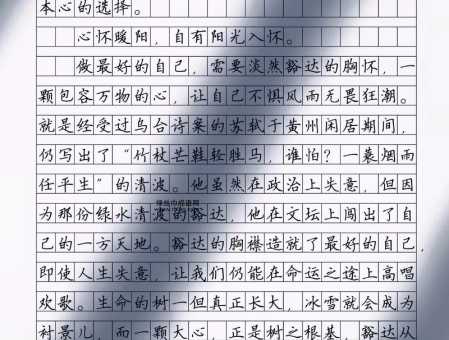 本心的选择。
心怀暖阳，自有阳光入怀。
做最好的自己，需要淡然豁达的胸怀，一
颗包容万物的心，让自己不惧风雨无畏狂潮。
就是经受过乌台诗案的苏轼于黄州闲居期间，
仍写出了“竹杖芒鞋轻胜马，谁怕？一蓑烟雨
任平生”的清波。他虽然在政治上失意，但因
为那份绿水清波的豁达，他在文坛上闯出了自
己的一方天地。豁达的胸襟造就了最好的自己，
即使人生失意，让我们仍能在命运之途上高唱
欢歌。生命的树一但真正长大，冰雪就会成为
衬景儿，而一颗大心，正是树之根基，豁达从